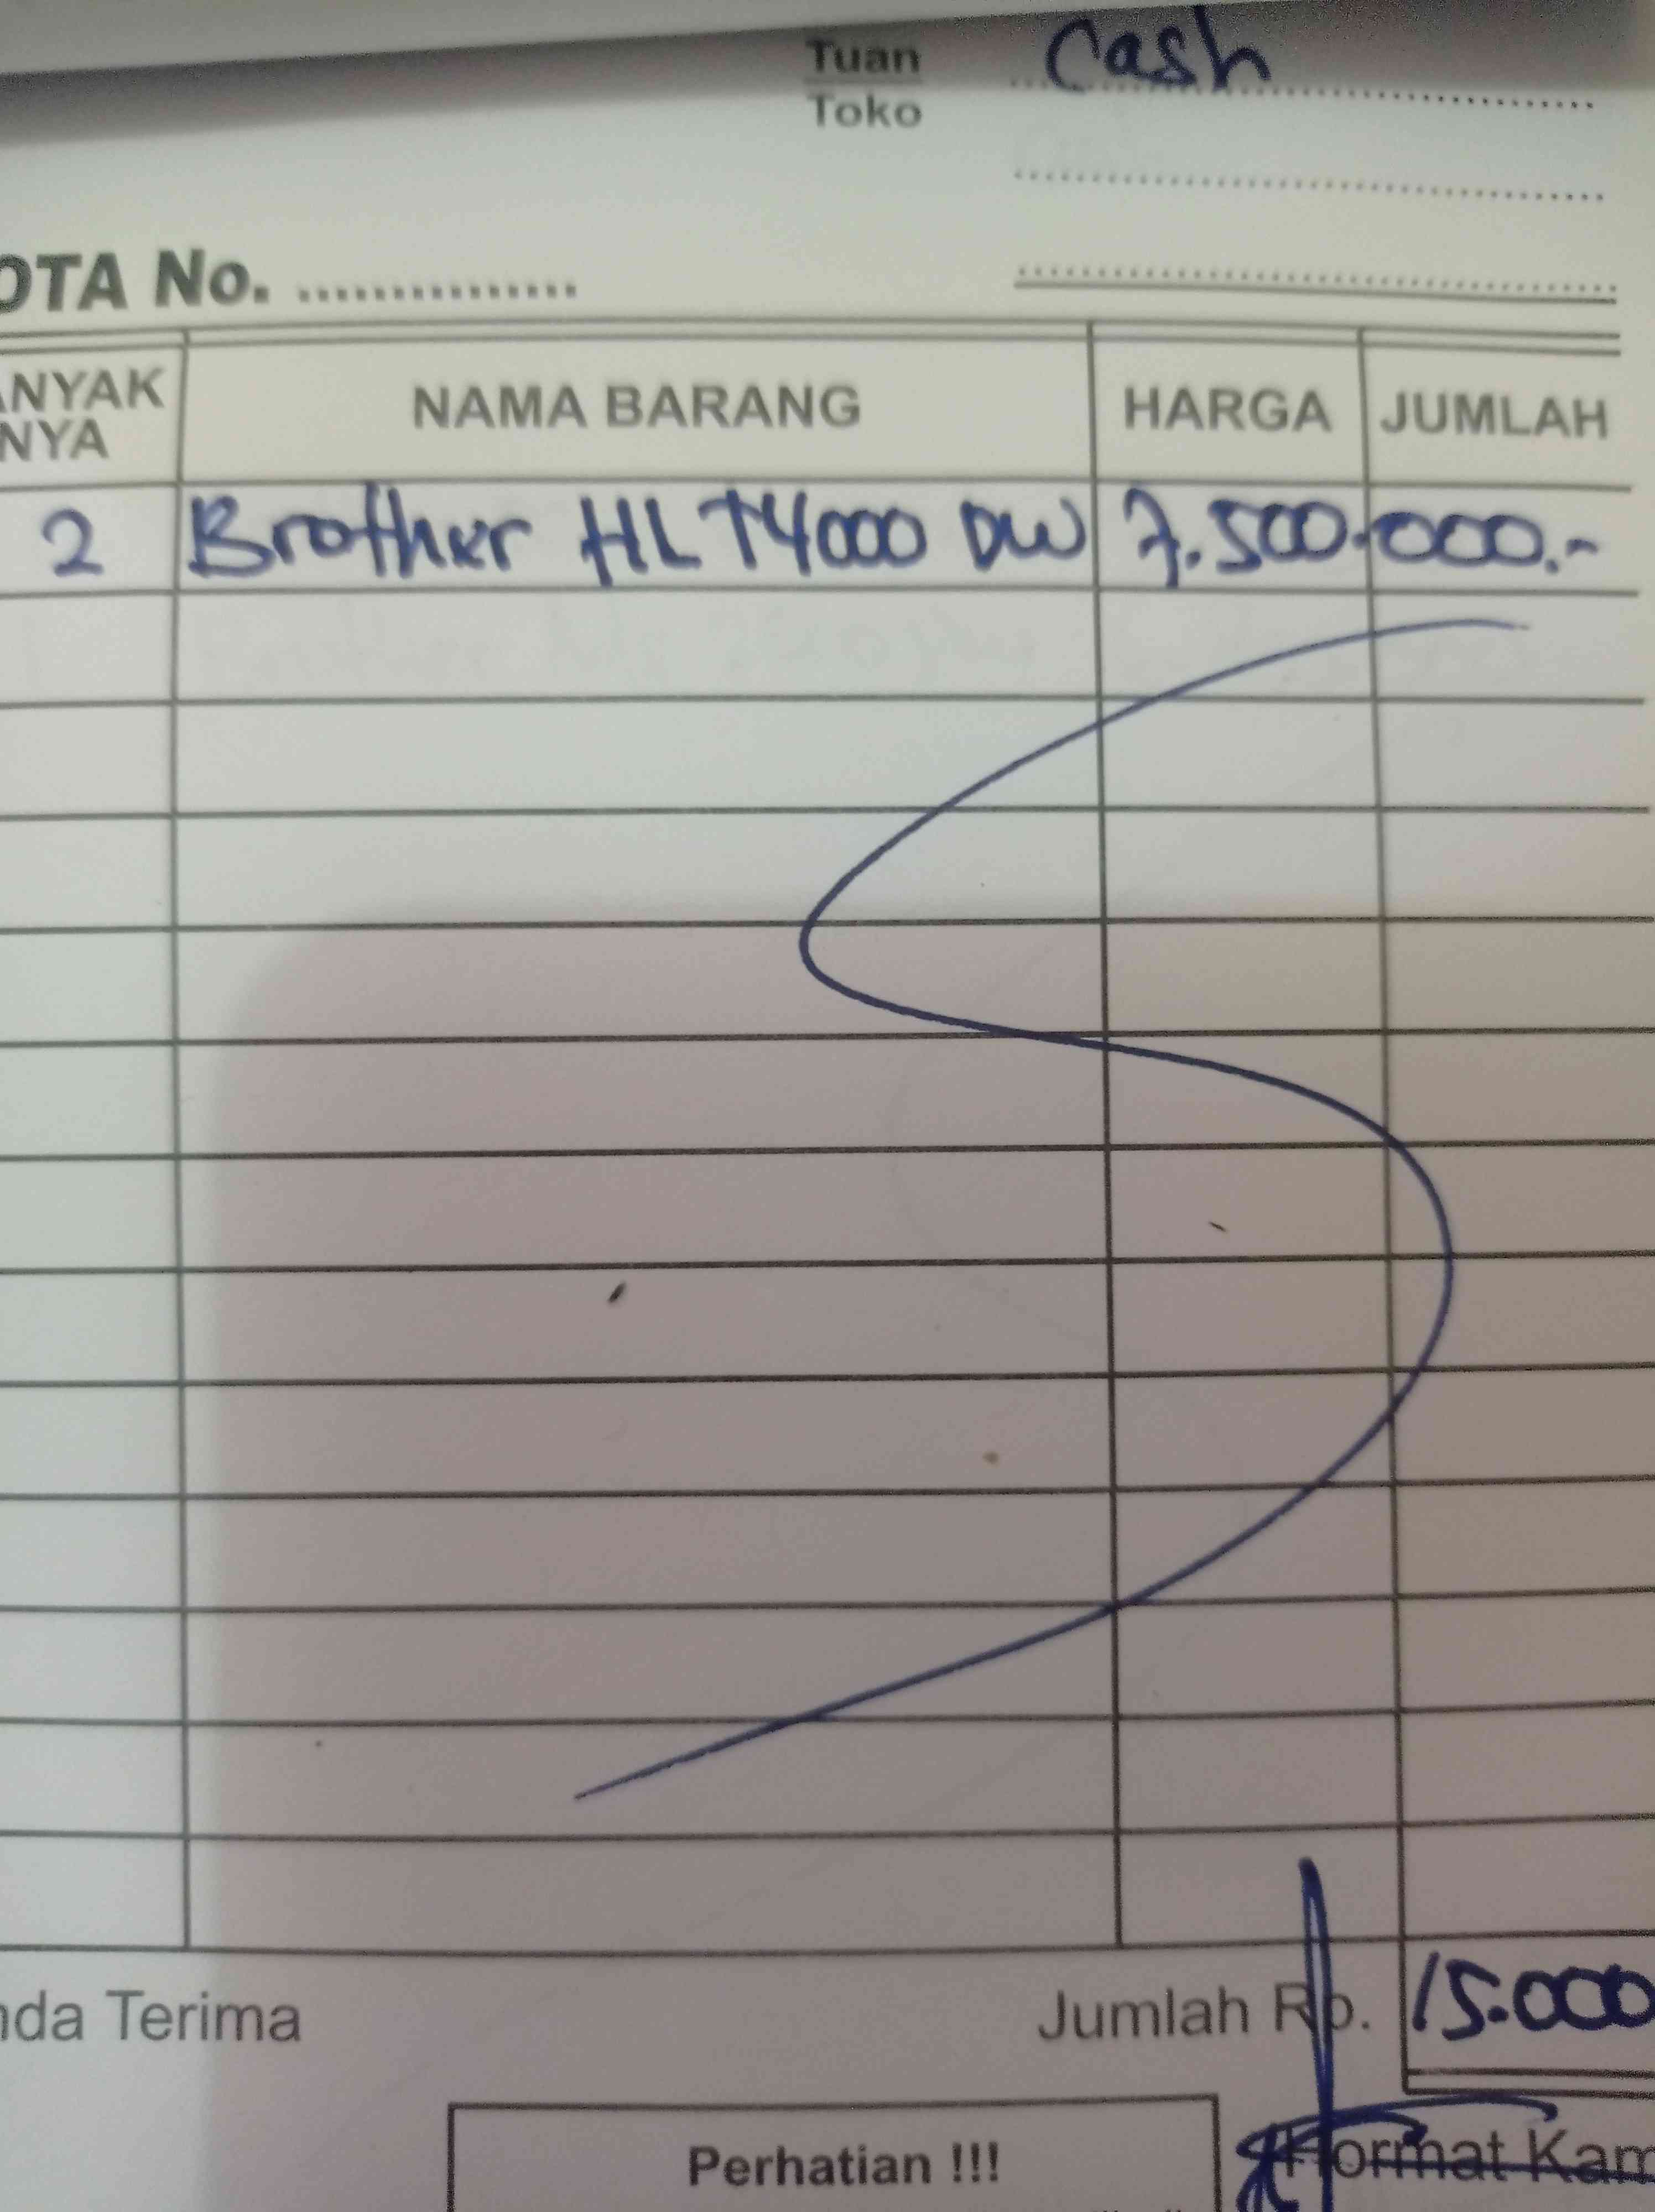 Tuan Cash
Toko
OTA No. ...............
ANYAK NAMA BARANG HARGA JUMLAH
NYA
2 Brother HL T4000 DW 7.500.000.-
nda Terima Jumlah Rp. 15.000
Perhatian !!! Hormat Kam